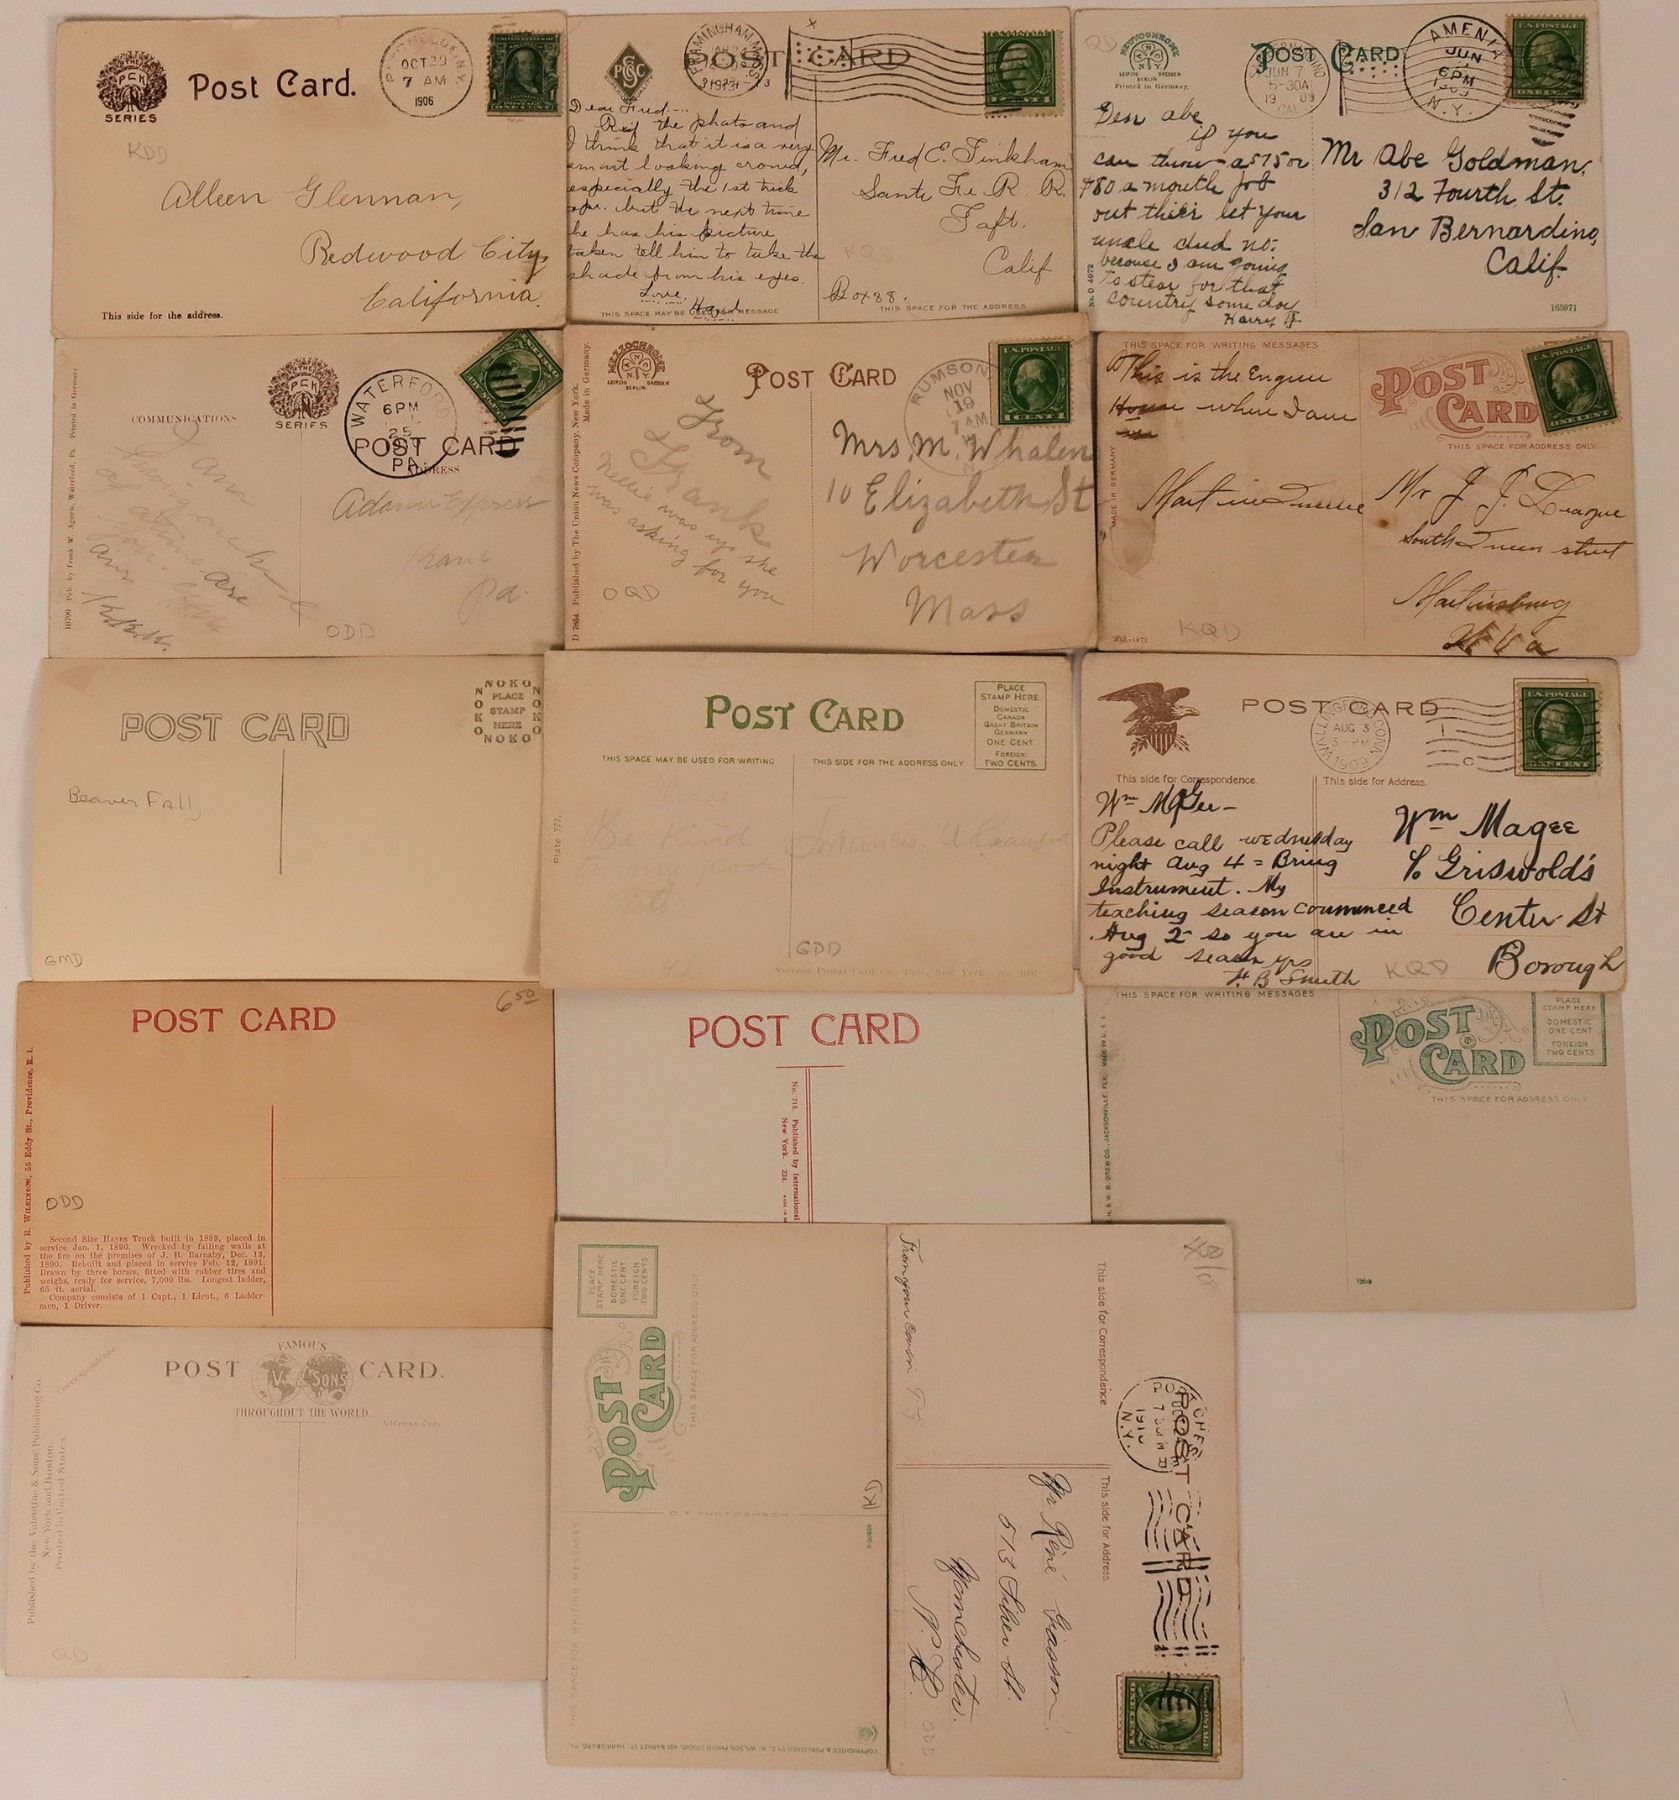 THE
P C K
SERIES
Post Card.
OCT 29
7 AM
1906
KDD
Alleen Glennan,
Redwood City
California.
This side for the address.
POST CARD
FRAMINGHAM, MASS.
Dear Fred:--
Rec'd the photo and
I think that it is a very
smart looking crowd,
especially the 1st trick
opr. but the next time
he has his picture
taken tell him to take the
shade from his eyes.
Love,
Mr. Fred E. Finkham
Sante Fe R. R.
Taft.
Calif
Box 88.
KQD
THIS SPACE MAY BE USED FOR MESSAGE
THIS SPACE FOR THE ADDRESS
QD
MEZZOCHROME
LEIPZIG DRESDEN
BERLIN
Printed in Germany.
POST CARD
JUN 7
5-30A
19 09
CAL
AMENIA
JUN
6 PM
N.Y.
U.S. POSTAGE
Dear Abe
if you
can throw a $75 or
$80 a month job
out their let your
uncle dud no.
because I am going
to stear for that
country some day
Harry
Mr Abe Goldman,
312 Fourth St.
San Bernardino,
Calif.
165971
COMMUNICATIONS
THE
P C K
SERIES
WATERFORD
6 PM
25
PA.
POST CARD
ADDRESS
10799 Pub. by Frank W. Agnew, Waterford, Pa. Printed in Germany
Adams Express
Kane
Pa.
ODD
MEZZOCHROME
LEIPZIG DRESDEN
BERLIN
POST CARD
RUMSON
NOV
19
7 AM
U.S. POSTAGE
D 7834 Published by The Union News Company, New York.
Made in Germany.
From
Franks
Nellie was up she
was asking for you
OQD
Mrs. M. Whalen
10 Elizabeth St
Worcester
Mass
THIS SPACE FOR WRITING MESSAGES
POST CARD
THIS SPACE FOR ADDRESS ONLY.
MADE IN GERMANY
This is the Engine
House when I am
Mr J. J. League
South Queen street
Martinsburg
W Va
KQD
POST CARD
NOKO
PLACE
STAMP
HERE
NOKO
Beaver Falls
GMD
POST CARD
PLACE
STAMP HERE
DOMESTIC
CANADA
GREAT BRITAIN
GERMANY
ONE CENT
FOREIGN:
TWO CENTS.
THIS SPACE MAY BE USED FOR WRITING
THIS SIDE FOR THE ADDRESS ONLY
Plate 777.
Be Kind
to my poor
GDD
Success Postal Card Co., Pub., New York.
POST CARD
WALLINGFORD, CONN.
AUG 3
3- PM
1909
U.S. POSTAGE
This side for Correspondence.
This side for Address.
Wm McGee -
Please call wednesday
night Aug 4 = Bring
Instrument. My
teaching season commenced
Aug 2 so you are in
good season yrs
H. B Smith
Wm Magee
℅ Griswold's
Center St
Borough
KQD
POST CARD
6 50
Published by R. WILKINSON, 55 Eddy St., Providence, R. I.
ODD
Second Size Hayes Truck built in 1889, placed in
service Jan. 1, 1890. Wrecked by falling walls at
the fire on the premises of J. B. Barnaby, Dec. 13,
1890. Rebuilt and placed in service Feb. 12, 1891.
Drawn by three horses, fitted with rubber tires and
weighs, ready for service, 7,000 lbs. Longest ladder,
65 ft. aerial.
Company consists of 1 Capt., 1 Lieut., 6 Ladder-
men, 1 Driver.
POST CARD
No. 718. Published by International
New York.
THIS SPACE FOR WRITING MESSAGES
POST CARD
THIS SPACE FOR ADDRESS ONLY
PLACE
STAMP HERE
DOMESTIC
ONE CENT
FOREIGN
TWO CENTS
FAMOUS
POST V. & SONS CARD.
THROUGHOUT THE WORLD.
Correspondence
Address Only
Published by the Valentine & Sons' Publishing Co.
New York and Boston.
Printed in United States
QD
PLACE
STAMP HERE
DOMESTIC
ONE CENT
FOREIGN
TWO CENTS
POST CARD
THIS SPACE FOR ADDRESS ONLY
C.T. PHOTOCHROM
THIS SPACE FOR WRITING MESSAGES
KD
COPYRIGHTED & PUBLISHED BY E. W. WILSON PHOTO STUDIO, 430 MARKET ST. HARRISBURG, PA
This side for Correspondence
POST CARD
This side for Address.
1910
N.Y.
From your cousin
Mr René
513 Silver St.
Manchester.
N. H.
ODD